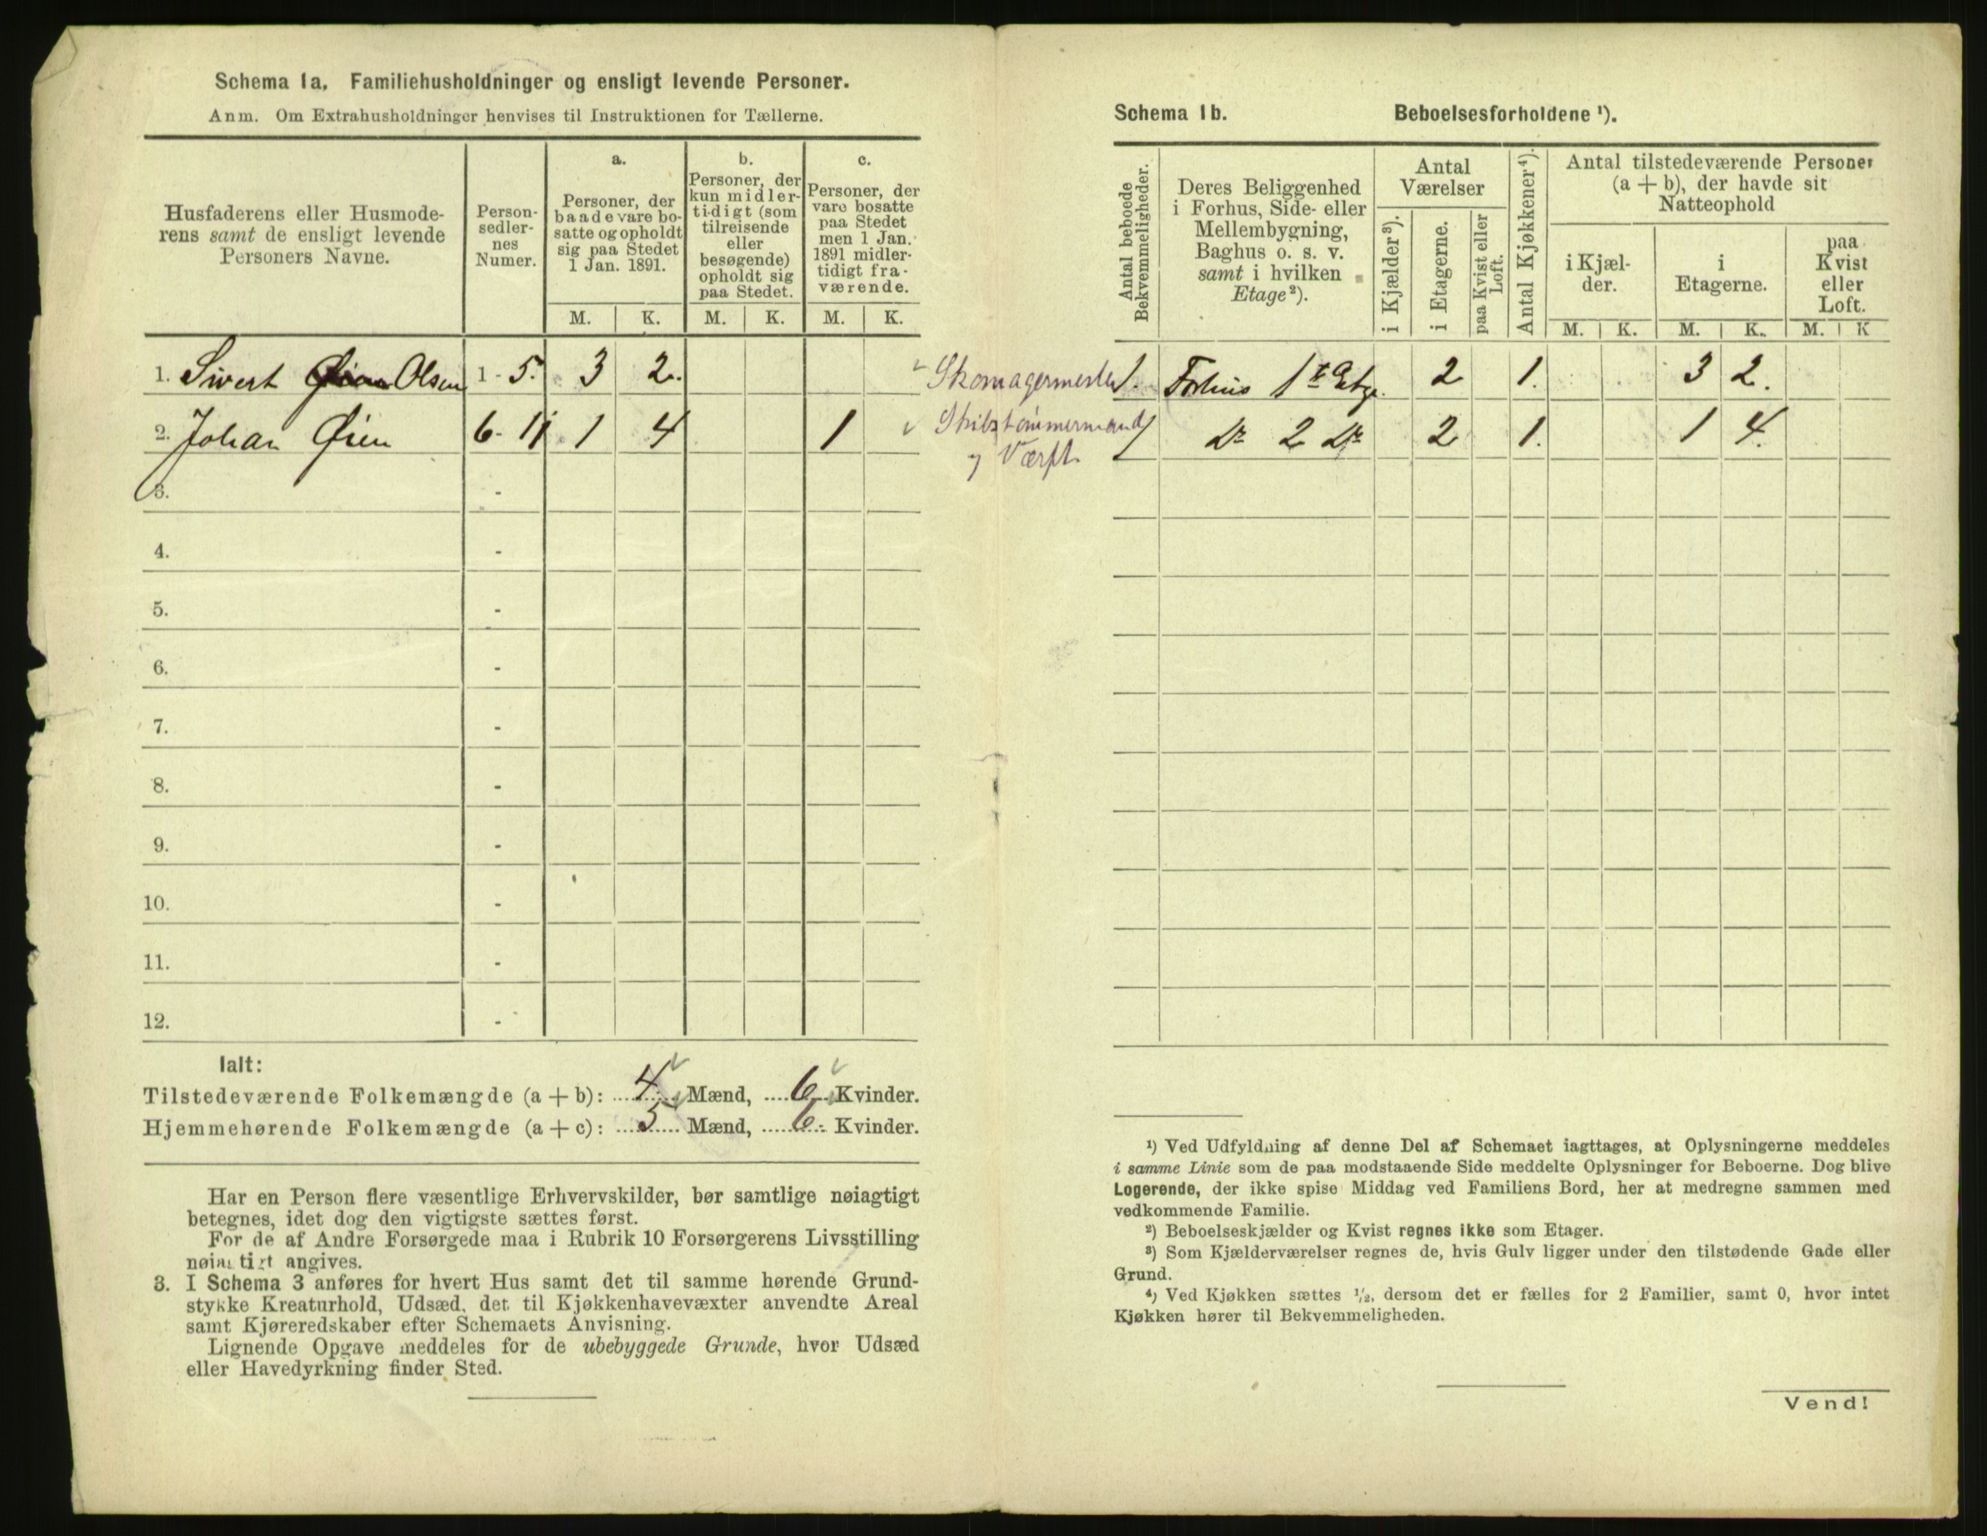 Schema 1a. Familiehusholdninger og ensligt levende Personer.
Anm. Om Extrahusholdninger henvises til Instruktionen for Tællerne.
Husfaderens eller Husmode-
rens samt de ensligt levende
Personers Navne.
Person-
sedler-
nes
Numer.
a.
Personer, der
baade vare bo-
satte og opholdt
sig paa Stedet
1 Jan. 1891.
b.
Personer, der
kun midler-
tidigt (som
tilreisende
eller
besøgende)
opholdt sig
paa Stedet.
c.
Personer, der
vare bosatte
paa Stedet
men 1 Jan.
1891 midler-
tidigt fra-
værende.
M. K. M. K. M. K.
1. Sivert Olsen 1 - 5. 3 2. Skomagermester
2. Johan Øien 6 - 11 1 4 1 Skibstømmermand
Værft.
3. -
4. -
5. -
6. -
7. -
8. -
9. -
10. -
11. -
12. -
Ialt:
Tilstedeværende Folkemængde (a + b): 4 Mænd, 6 Kvinder.
Hjemmehørende Folkemængde (a + c): 5 Mænd, 6 Kvinder.
Har en Person flere væsentlige Erhvervskilder, bør samtlige nøiagtigt
betegnes, idet dog den vigtigste sættes først.
For de af Andre Forsørgede maa i Rubrik 10 Forsørgerens Livsstilling
nøiagtigt angives.
3. I Schema 3 anføres for hvert Hus samt det til samme hørende Grund-
stykke Kreaturhold, Udsæd, det til Kjøkkenhavevæxter anvendte Areal
samt Kjøreredskaber efter Schemaets Anvisning.
Lignende Opgave meddeles for de ubebyggede Grunde, hvor Udsæd
eller Havedyrkning finder Sted.
Schema 1b. Beboelsesforholdene ¹).
Antal beboede
Bekvemmeligheder.
Deres Beliggenhed
i Forhus, Side- eller
Mellembygning,
Baghus o. s. v.
samt i hvilken
Etage²).
Antal
Værelser
i Kjælder³).
i Etagerne.
paa Kvist eller
Loft.
Antal Kjøkkener⁴).
Antal tilstedeværende Personer
(a + b), der havde sit
Natteophold
i Kjæl-
der.
i
Etagerne.
paa
Kvist
eller
Loft.
M. K. M. K. M. K
1. Forhus 1ste Etge. 2 1. 3 2.
1 Do 2 Do 2 1. 1 4.
¹) Ved Udfyldning af denne Del af Schemaet iagttages, at Oplysningerne meddeles
i samme Linie som de paa modstaaende Side meddelte Oplysninger for Beboerne. Dog blive
Logerende, der ikke spise Middag ved Familiens Bord, her at medregne sammen med
vedkommende Familie.
²) Beboelseskjælder og Kvist regnes ikke som Etager.
³) Som Kjælderværelser regnes de, hvis Gulv ligger under den tilstødende Gade eller
Grund.
⁴) Ved Kjøkken sættes ½, dersom det er fælles for 2 Familier, samt 0, hvor intet
Kjøkken hører til Bekvemmeligheden.
Vend!